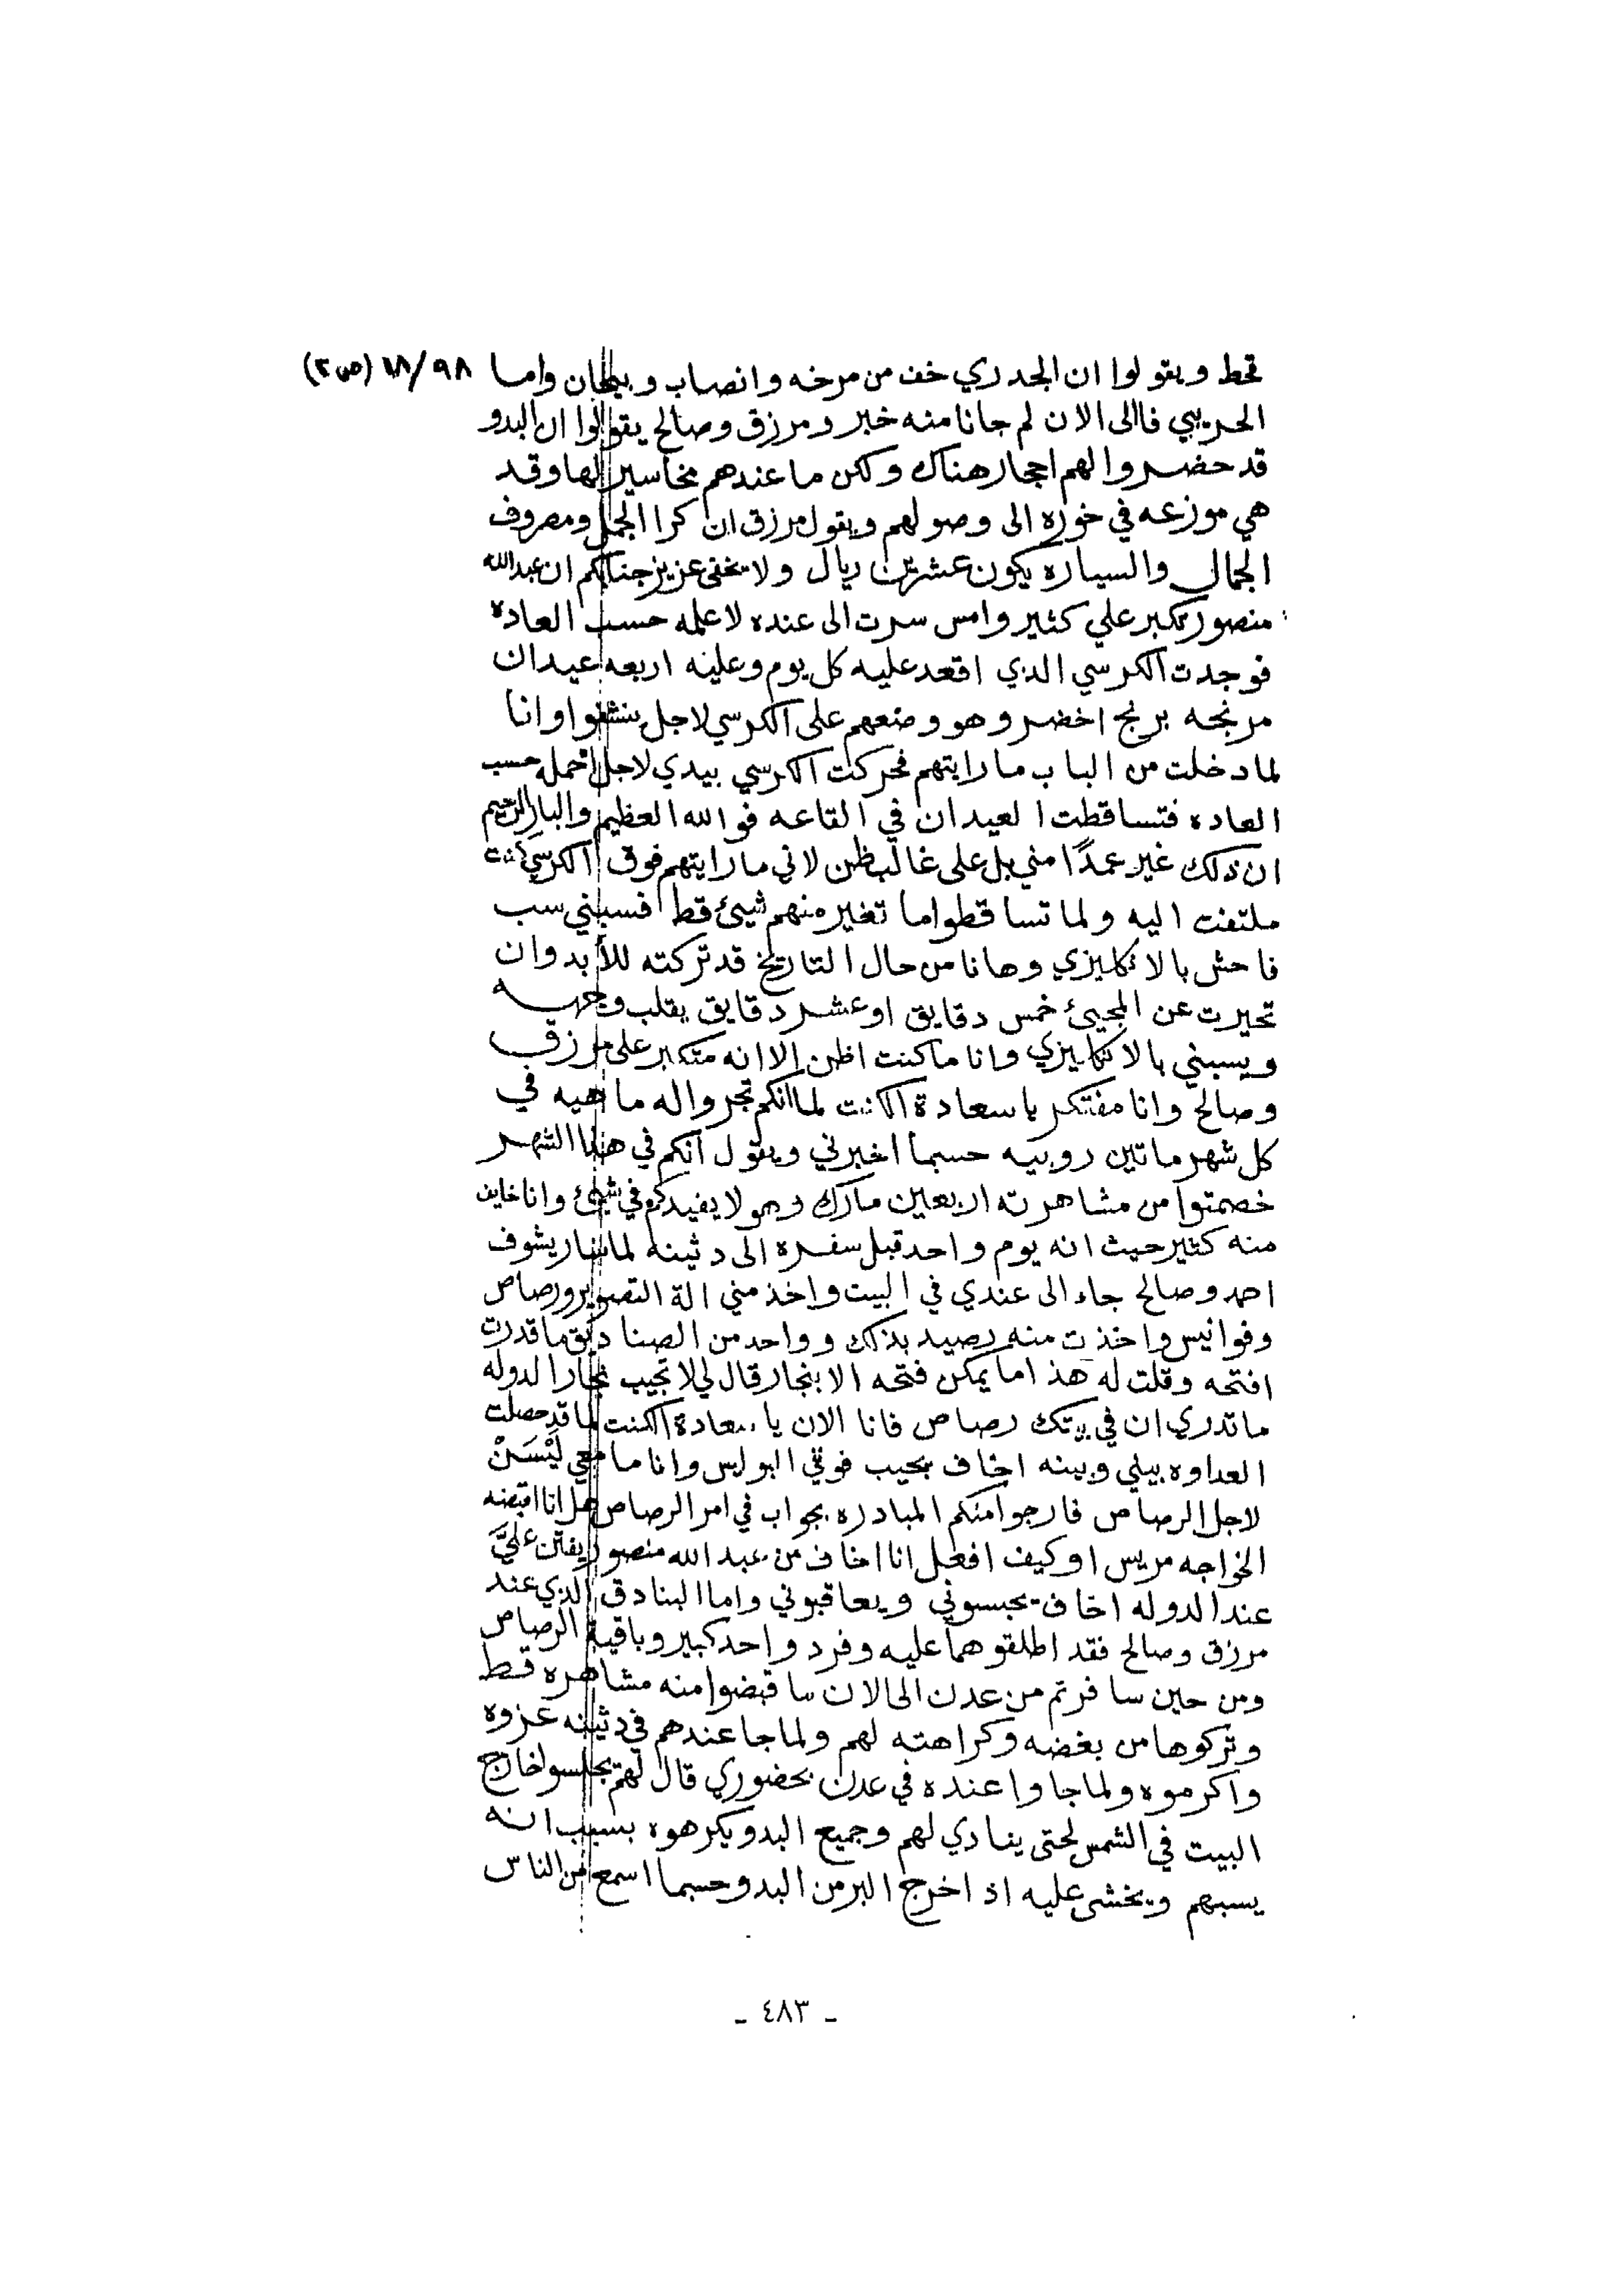 قحط ويقولوا ان الجدري خف من مرخه وانصاب وبيحان واما ٩٨/١٨ (ص٣)
الحريبي فالى الان لم جانا منه خبر ومرزق وصالح يقولوا ان البدو
قد حضروا لهم احجار هناك ولكن ما عندهم مخاسير لها وقد
هي موزعه في خوره الى وصولهم ويقول مرزق ان كرا الجمل ومصروف
الجمال والسياره يكون عشرين ريال ولا يخفى عزيز جنابكم ان عبدالله
منصور تكبر علي كثير وامس سرت الى عنده لاعلمه حسب العاده
فوجدت الكرسي الدي اقعد عليه كل يوم وعليه اربعه عيدان
مرنجه برنج اخضر وهو وضعهم على الكرسي لاجل ينشفوا وانا
لما دخلت من الباب ما رايتهم فحركت الكرسي بيدي لاجل احمله حسب
العاده فتساقطت العيدان في القاعه فوالله العظيم والبار الرحيم
ان ذلك غير عمدًا مني بل على غالب ظن لاني ما رايتهم فوق الكرسي كنت
ملتفت اليه ولما تساقطوا ما تغير منهم شيئ قط فسبني سب
فاحش بالانكليزي وهانا من حال التاريخ قد تركته للأبد وان
تحيرت عن المجيئ خمس دقايق او عشر دقايق يقلب وجهه
ويسبني بالانكليزي وانا ما كنت اظن الا انه متكبر على مرزق
وصالح وانا مفتكر يا سعادة الكنت لما انكم تجروا له ماهيه في
كل شهر ماتين روبيه حسبما اخبرني ويقول انكم في هذا الشهر
خصمتوا من مشاهرته اربعين مارك وهو لا يفيدكم في شيئ وانا خايف
منه كثير حيث انه يوم واحد قبل سفره الى دثينه لما سار يشوف
احمد وصالح جاء الى عندي في البيت واخذ مني الة التصوير ورصاص
وفوانيس واخذت منه رصيد بذلك وواحد من الصناديق ما قدرت
افتحه وقلت له هذا ما يمكن فتحه الا بنجار قال لي لا تجيب نجار الدوله
ما تدري ان في بيتك رصاص فانا الان يا سعادة الكنت لما قد حصلت
العداوه بيني وبينه اخاف يجيب فوقي البوليس وانا ما معي لَيْسَنْ
لاجل الرصاص فارجوا منكم المبادره بجواب في امر الرصاص هل انا اقبضه
الخواجه مريس او كيف افعل انا اخاف من عبدالله منصور يفتن عليَّ
عند الدوله اخاف يحبسوني ويعاقبوني واما البنادق الدي عند
مرزق وصالح فقد اطلقوهما عليه وفرد واحد كبير وباقية الرصاص
ومن حين سافرتم من عدن الى الان ما قبضوا منه مشاهره قط
وتركوها من بغضه وكراهته لهم ولما جا عندهم في دثينه عزوه
واكرموه ولما جاوا عنده في عدن بحضوري قال لهم يجلسو لخارج
البيت في الشمس لحتى ينادي لهم وجميع البدو يكرهوه بسبب انه
يسبهم ويخشى عليه اذا خرج البر من البدو حسبما اسمع من الناس
ـ ٤٨٣ ـ